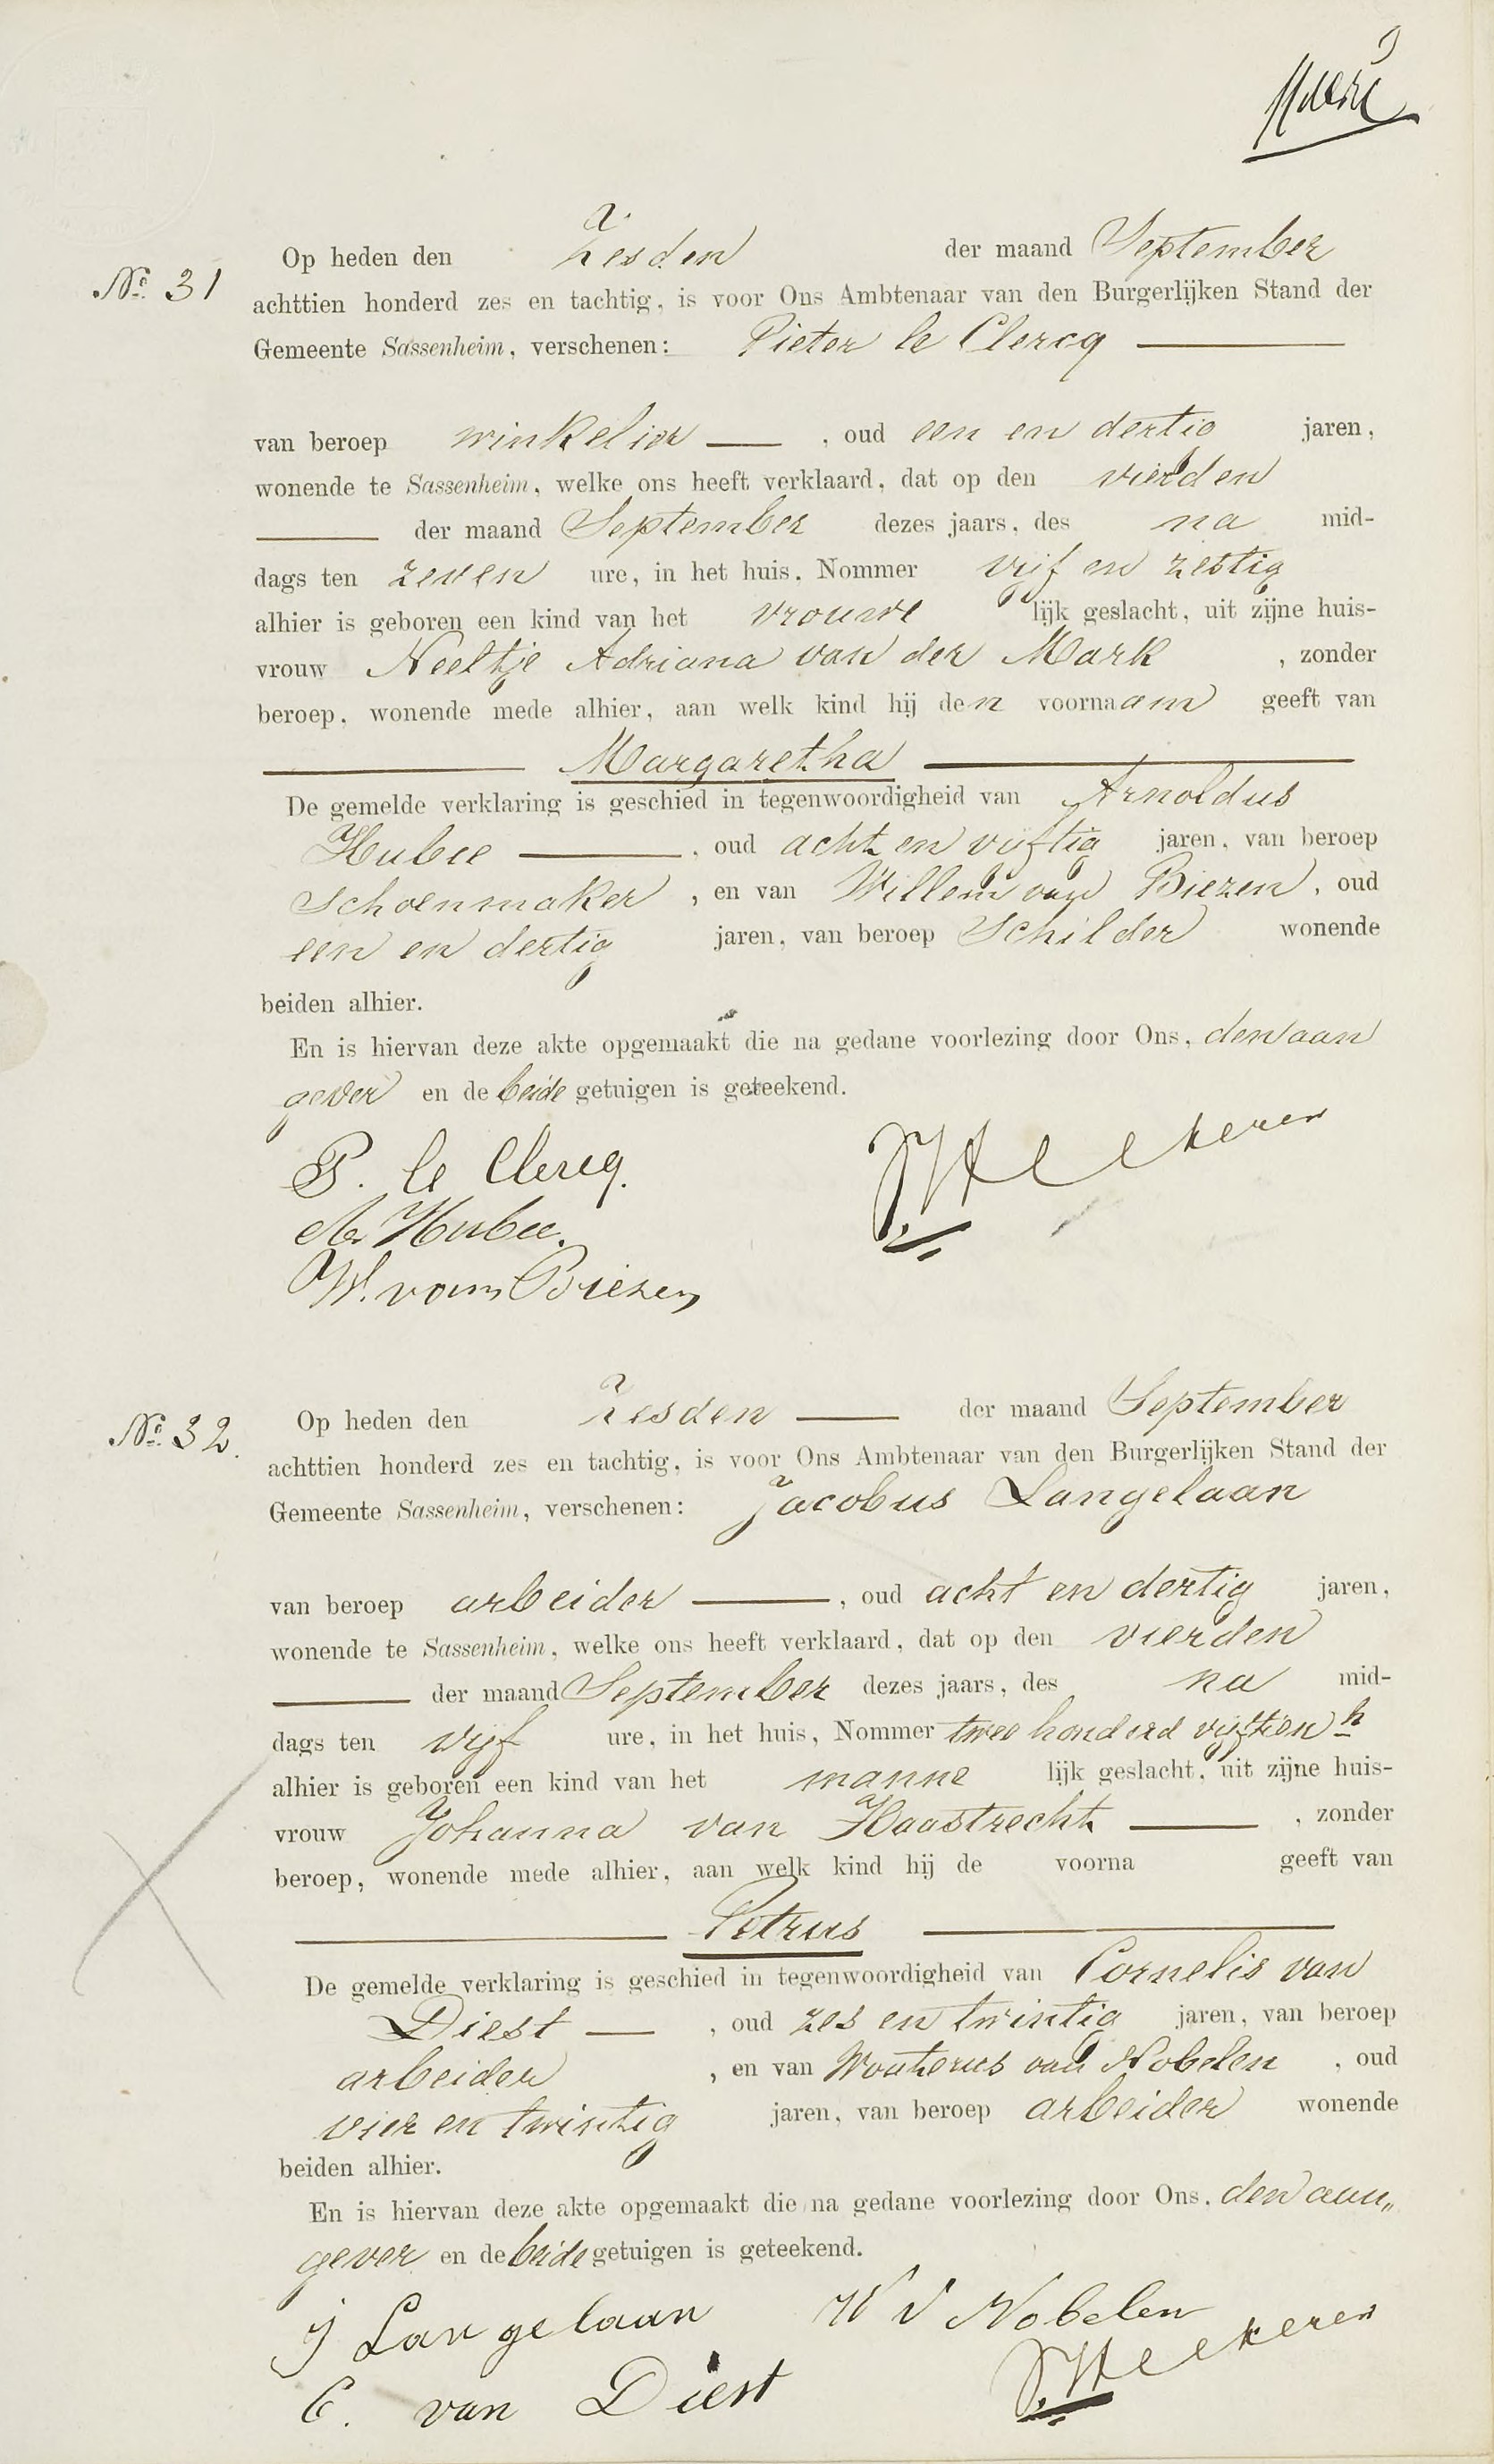 Op heden den Zesden der maand September
No. 31
achttien honderd zes en tachtig, is voor Ons Ambtenaar van den Burgerlijken Stand der
Gemeente Sassenheim, verschenen: Pieter le Clercq
van beroep winkelier, oud een en dertig jaren,
wonende te Sassenheim, welke ons heeft verklaard, dat op den vierden
der maand September dezes jaars, des na mid-
dags ten zeven ure, in het huis, Nommer vijf en zestig
alhier is geboren een kind van het vrouwe lijk geslacht, uit zijne huis-
vrouw Neeltje Adriana van der Mark, zonder
beroep, wonende mede alhier, aan welk kind hij den voornaam geeft van
Margaretha
De gemelde verklaring is geschied in tegenwoordigheid van Arnoldus
Hubee, oud acht en vijftig jaren, van beroep
Schoenmaker, en van Willem van Biezen, oud
een en dertig jaren, van beroep Schilder wonende
beiden alhier.
En is hiervan deze akte opgemaakt die na gedane voorlezing door Ons, den aan
gever en de beide getuigen is geteekend.
P. le Clercq.
A. Hubee.
W. van Biezen
No. 32.
Op heden den Zesden der maand September
achttien honderd zes en tachtig, is voor Ons Ambtenaar van den Burgerlijken Stand der
Gemeente Sassenheim, verschenen: Jacobus Langelaan
van beroep arbeider, oud acht en dertig jaren,
wonende te Sassenheim, welke ons heeft verklaard, dat op den vierden
der maand September dezes jaars, des na mid-
dags ten vijf ure, in het huis, Nommer twee honderd vijftien h
alhier is geboren een kind van het manne lijk geslacht, uit zijne huis-
vrouw Johanna van Haastrecht, zonder
beroep, wonende mede alhier, aan welk kind hij de voorna geeft van
Petrus
De gemelde verklaring is geschied in tegenwoordigheid van Cornelis van
Diest, oud zes en twintig jaren, van beroep
arbeider, en van Wouterus van Nobelen, oud
vier en twintig jaren, van beroep arbeider wonende
beiden alhier.
En is hiervan deze akte opgemaakt die na gedane voorlezing door Ons, den aan„
gever en de beide getuigen is geteekend.
J Langelaan W V Nobelen
C. van Diest